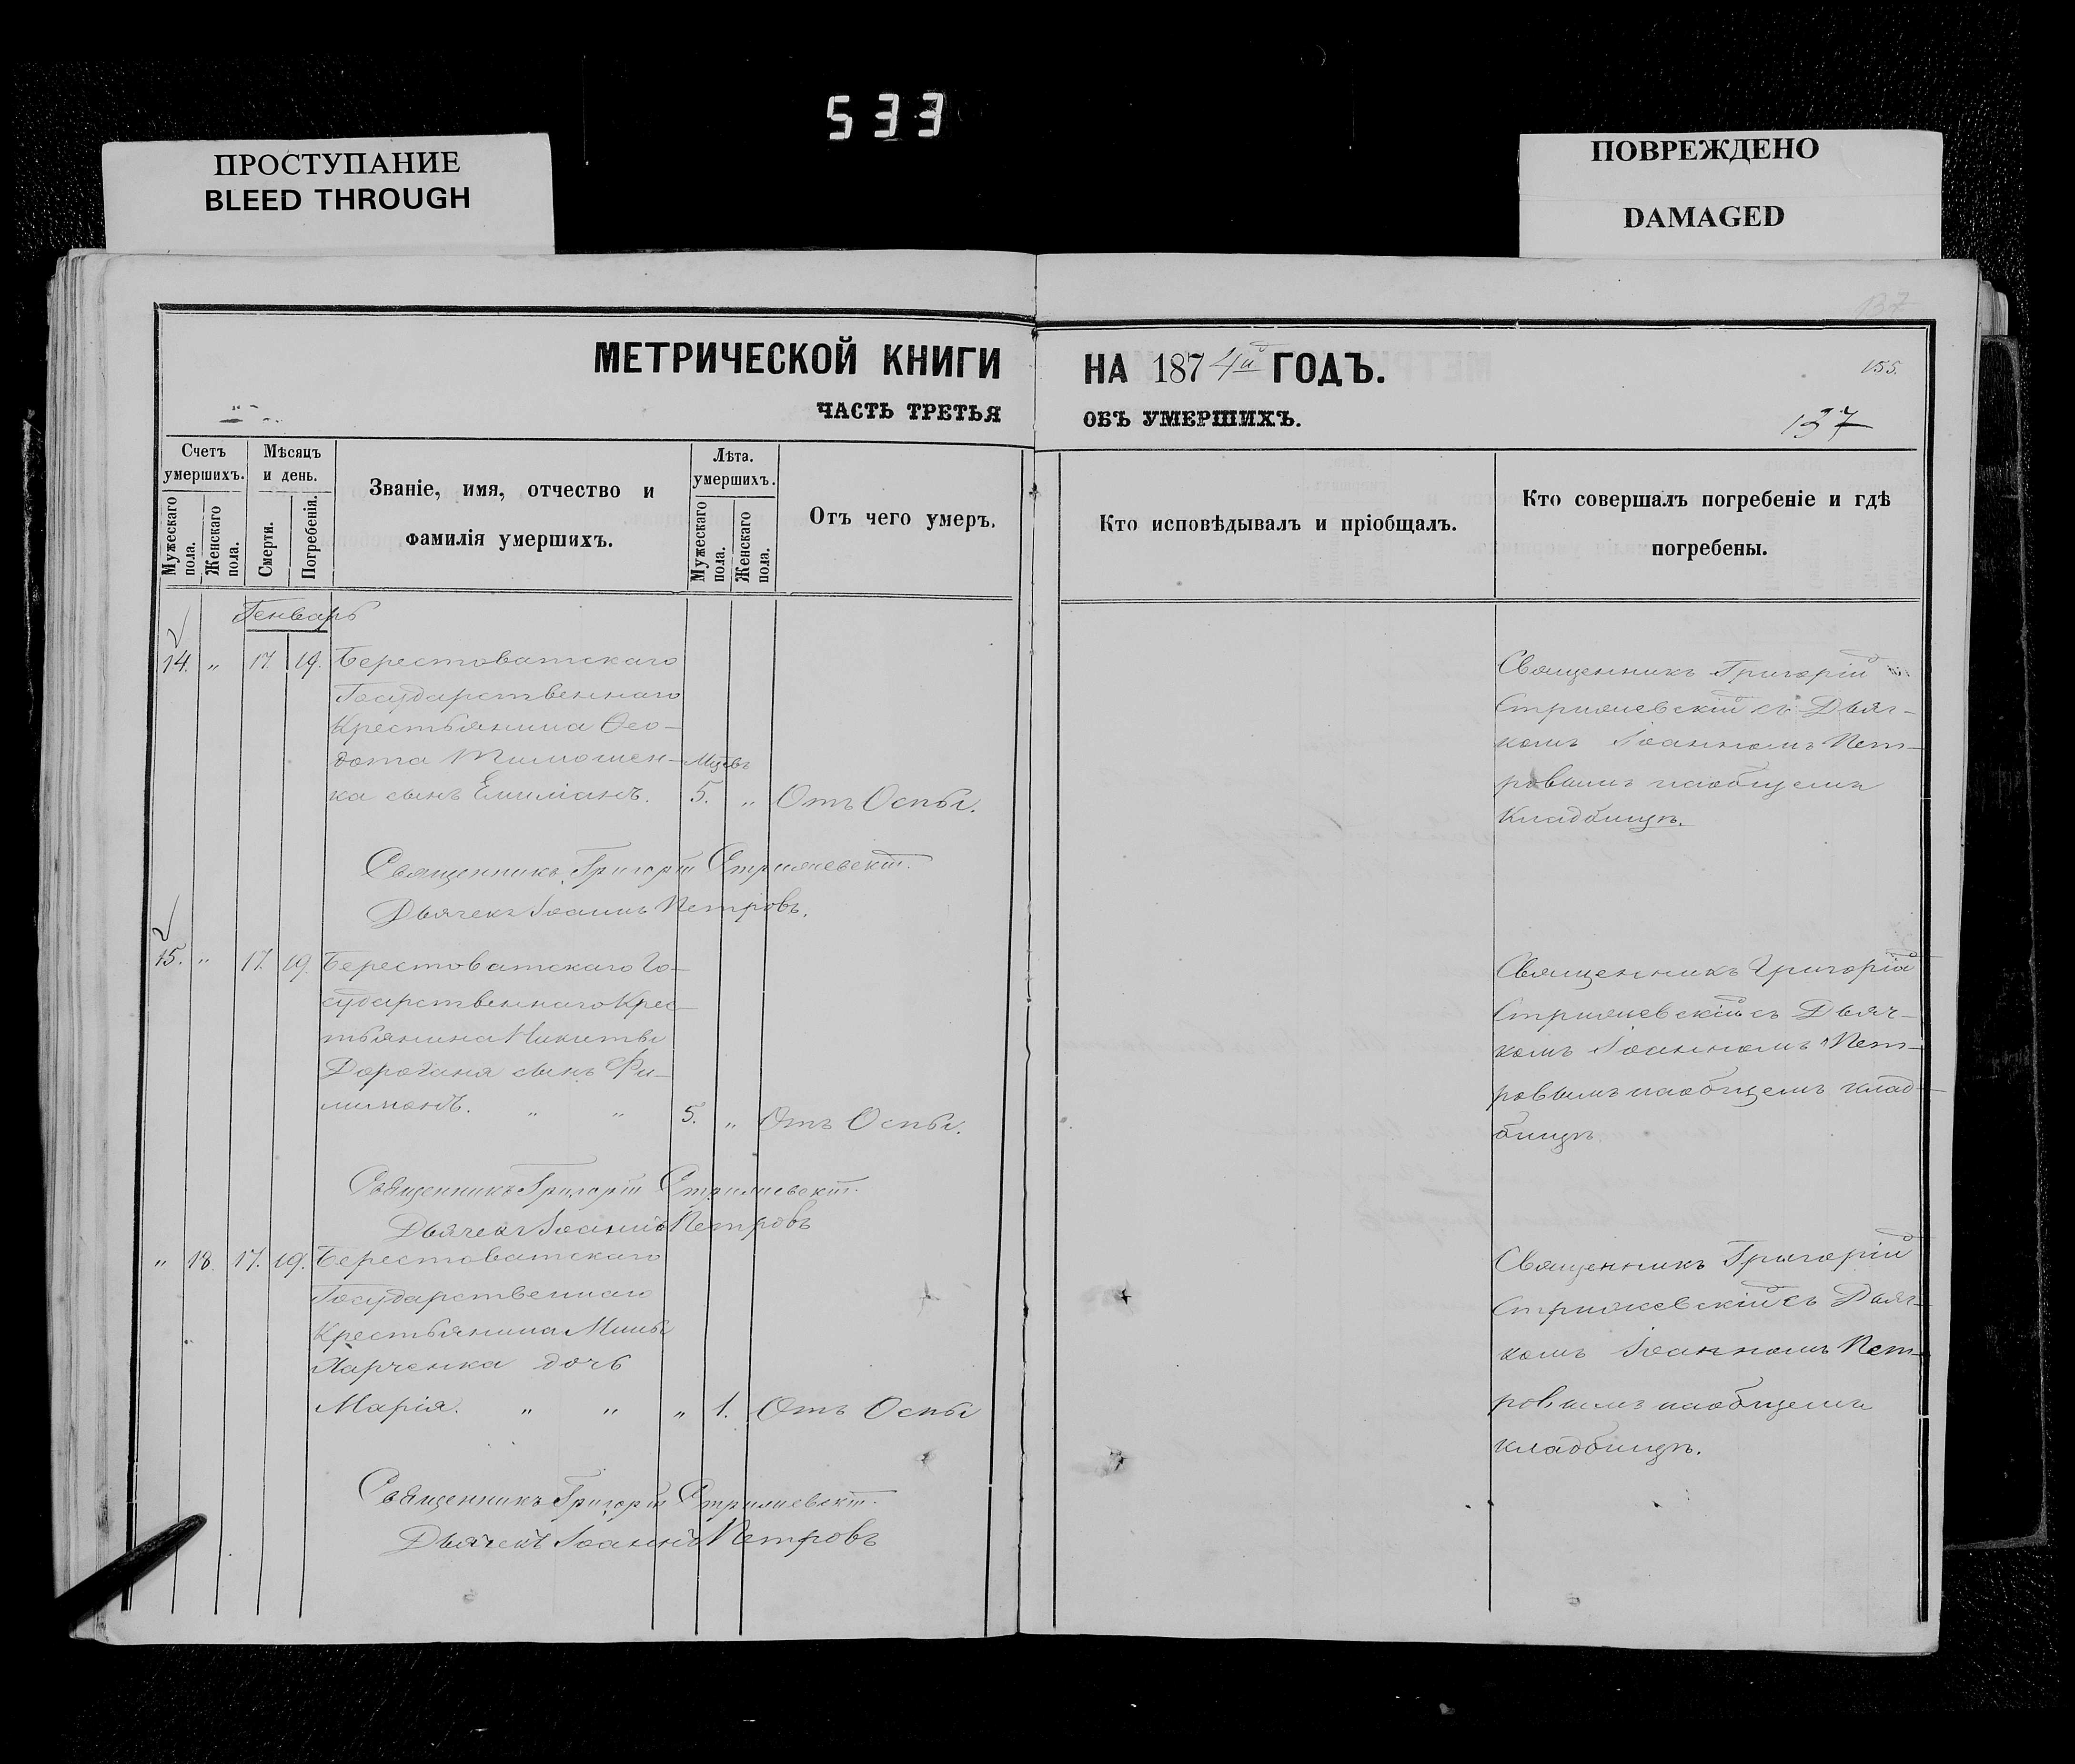 533
ПРОСТУПАНИЕ
BLEED THROUGH
ПОВРЕЖДЕНО
DAMAGED
МЕТРИЧЕСКОЙ КНИГИ НА 1874й ГОДЪ.
155.
ЧАСТЬ ТРЕТЬЯ ОБЪ УМЕРШИХЪ.
137
Счетъ умершихъ.
Мужескаго пола.
Женскаго пола.
Мѣсяцъ и день.
Смерти.
Погребенія.
Званіе, имя, отчество и
фамилія умершихъ.
Лѣта. умершихъ.
Мужескаго пола.
Женскаго пола.
Отъ чего умеръ.
Кто исповѣдывалъ и пріобщалъ.
Кто совершалъ погребеніе и гдѣ
погребены.
Генварь
14. " 17. 19. Берестоватскаго
Государственнаго
Крестьянина Ѳео-
дота Тимошен-
ка сынъ Емиліанъ. Мцсвъ 5. " Отъ Оспы.
Священникъ Григорій
Стрижевскій съ Дьяч-
комъ Іоанномъ Пет-
ровымъ наобщемъ
Кладбищѣ.
Священникъ Григорій Стрижевскій.
Дьячекъ Іоаннъ Петровъ.
15. " 17. 19. Берестоватскаго Го-
сударственнаго Крес-
тьянина Никиты
Дорогана сынъ Фи-
лимонъ. " " 5. " Отъ Оспы.
Священникъ Григорій
Стрижевскій съ Дьяч-
комъ Іоанномъ Пет-
ровымъ наобщемъ клад-
бищѣ.
Священникъ Григорій Стрижевскій.
Дьячекъ Іоаннъ Петровъ
" 18. 17. 19. Берестоватскаго
Государственнаго
Крестьянина Мины
Харченка дочь
Марія. " " " 1. Отъ Оспы
Священникъ Григорій
Стрижевскій съ Дьяч-
комъ Іоанномъ Пет-
ровымъ наобщемъ
кладбищѣ.
Священникъ Григорій Стрижевскій.
Дьячекъ Іоаннъ Петровъ